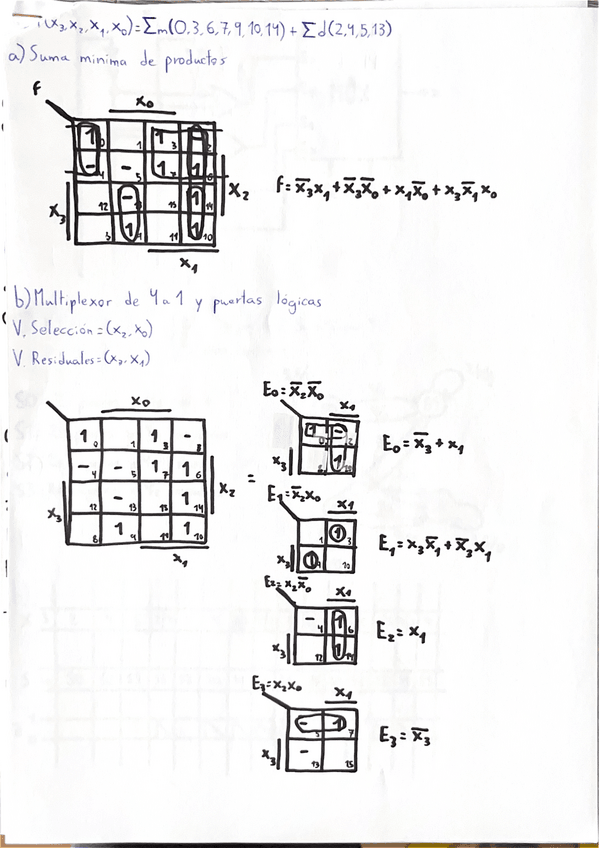 f(x₃,x₂,x₁,x₀)=∑m(0,3,6,7,9,10,14)+∑d(2,4,5,13)
a) Suma minima de productos
f
x₀
1 0 1 1 3 - 2
1 4 - 5 1 7 1 6
12 - 13 15 1 14
8 1 9 11 1 10
x₃
x₂
x₁
f= x̅₃x₁+x̅₃x̅₀+x₁x̅₀+x₃x̅₁x₀
b) Multiplexor de 4 a 1 y puertas lógicas
V. Selección=(x₂,x₀)
V. Residuales=(x₃,x₁)
x₀
1 0 1 1 3 -
- 4 - 5 1 7 1 6
12 - 13 15 1 14
8 1 9 11 1 10
x₃
x₂
x₁
=
E₀=x̅₂x̅₀
x₁
1 0 - 2
8 1 10
x₃
E₀=x̅₃+x₁
E₁=x̅₂x₀
x₁
1 1 3
1
x₃
E₁=x₃x̅₁+x̅₃x₁
E₂=x₂x̅₀
x₁
- 4 1 6
12 1 14
x₃
E₂=x₁
E₃=x₂x₀
x₁
- 5 1 7
- 13 15
x₃
E₃=x̅₃